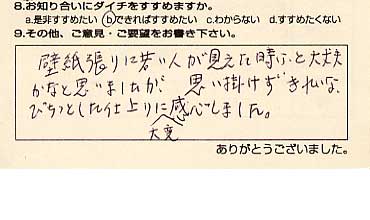 8.お知り合いにダイチをすすめますか。
a.是非すすめたい ⓑできればすすめたい c.わからない d.すすめたくない
9.その他、ご意見・ご要望をお書き下さい。
壁紙張りに若い人が見えた時、ふと大丈夫
かなと思いましたが、思い掛けずきれいな
ぴちっとした仕上りに感心しました。
大変
ありがとうございました。